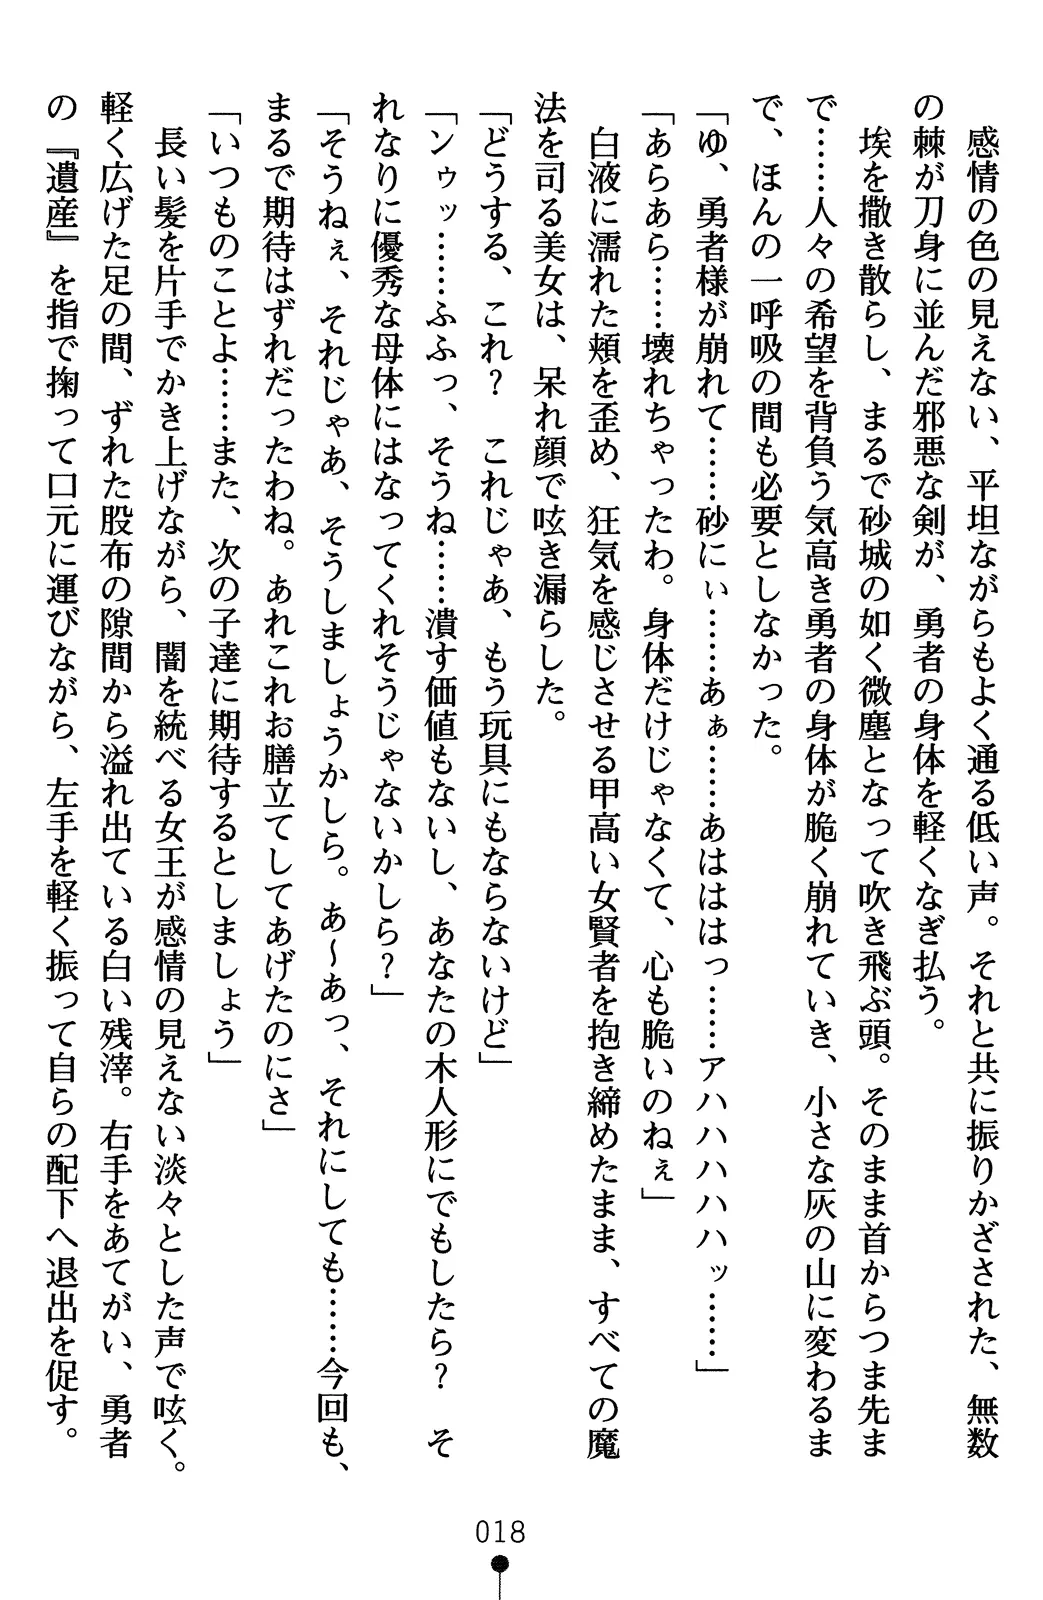 感情の色の見えない、平坦ながらもよく通る低い声。それと共に振りかざされた、無数
の棘が刀身に並んだ邪悪な剣が、勇者の身体を軽くなぎ払う。
埃を撒き散らし、まるで砂城の如く微塵となって吹き飛ぶ頭。そのまま首からつま先ま
で……人々の希望を背負う気高き勇者の身体が脆く崩れていき、小さな灰の山に変わるま
で、ほんの一呼吸の間も必要としなかった。
「ゆ、勇者様が崩れて……砂にぃ……あぁ……あはははっ……アハハハハッ……」
「あらあら……壊れちゃったわ。身体だけじゃなくて、心も脆いのねぇ」
白液に濡れた頬を歪め、狂気を感じさせる甲高い女賢者を抱き締めたまま、すべての魔
法を司る美女は、呆れ顔で呟き漏らした。
「どうする、これ？　これじゃあ、もう玩具にもならないけど」
「ンゥッ……ふふっ、そうね……潰す価値もないし、あなたの木人形にでもしたら？　そ
れなりに優秀な母体にはなってくれそうじゃないかしら？」
「そうねぇ、それじゃあ、そうしましょうかしら。あ～あっ、それにしても……今回も、
まるで期待はずれだったわね。あれこれお膳立てしてあげたのにさ」
「いつものことよ……また、次の子達に期待するとしましょう」
長い髪を片手でかき上げながら、闇を統べる女王が感情の見えない淡々とした声で呟く。
軽く広げた足の間、ずれた股布の隙間から溢れ出ている白い残滓。右手をあてがい、勇者
の『遺産』を指で掬って口元に運びながら、左手を軽く振って自らの配下へ退出を促す。
018